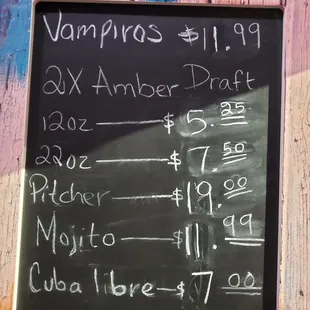 Vampiros $11.99
2X Amber Draft
12oz — $5.25
22oz — $7.50
Pitcher — $19.00
Mojito — $11.99
Cuba libre — $7.00